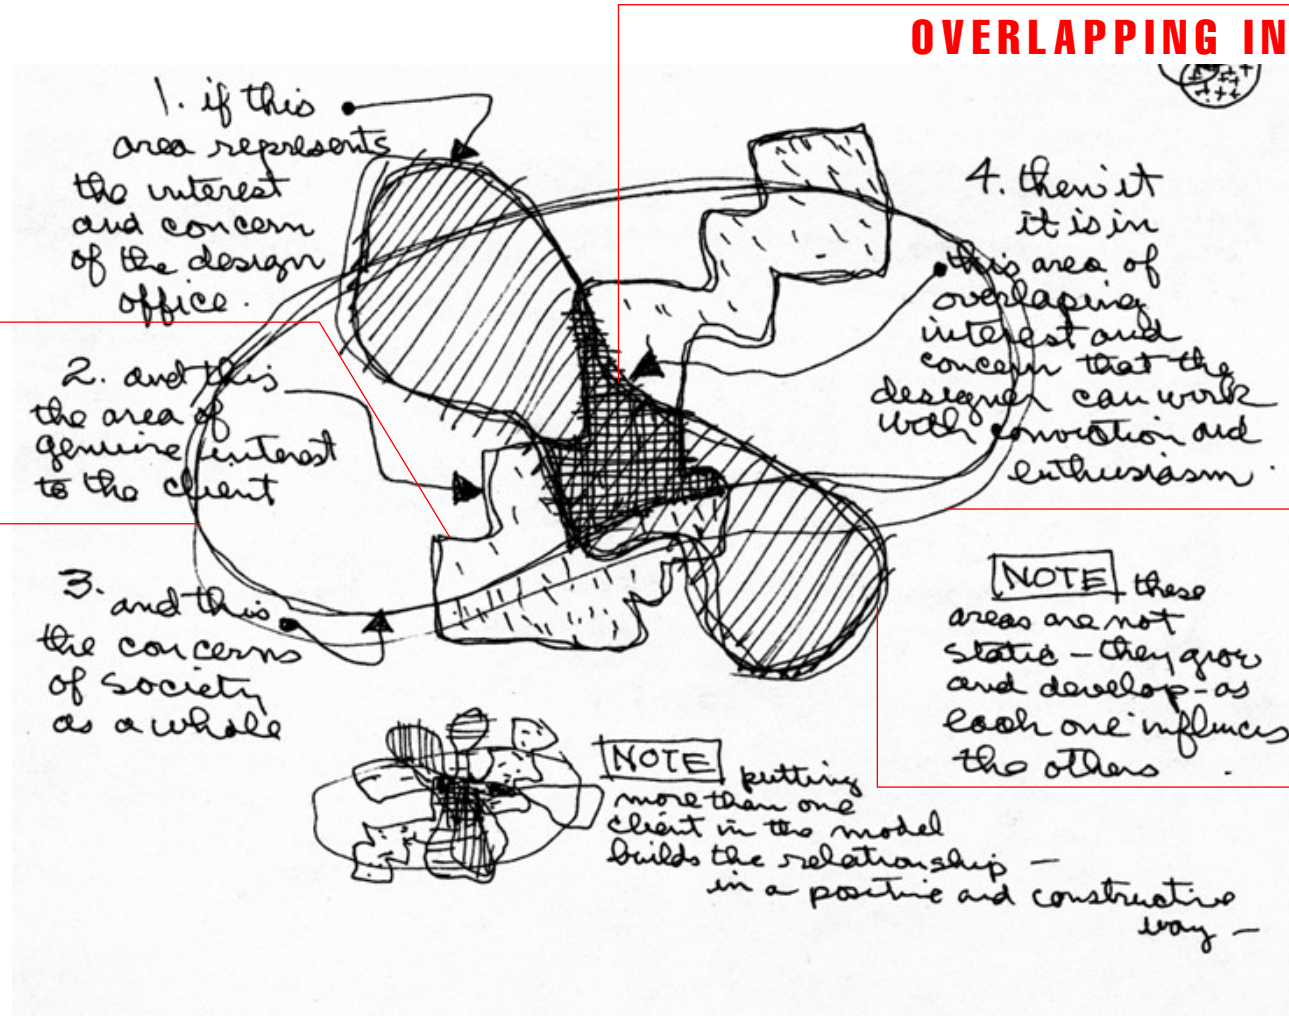 OVERLAPPING IN
1. if this
area represents
the interest
and concern
of the design
office.
2. and this
the area of
genuine interest
to the client
3. and this
the concerns
of society
as a whole
4. then it
it is in
this area of
overlaping
interest and
concern that the
designer can work
with conviction and
enthusiasm.
NOTE these
areas are not
static - they grow
and develop - as
each one influences
the others.
NOTE putting
more than one
client in the model
builds the relationship -
in a positive and constructive
way -